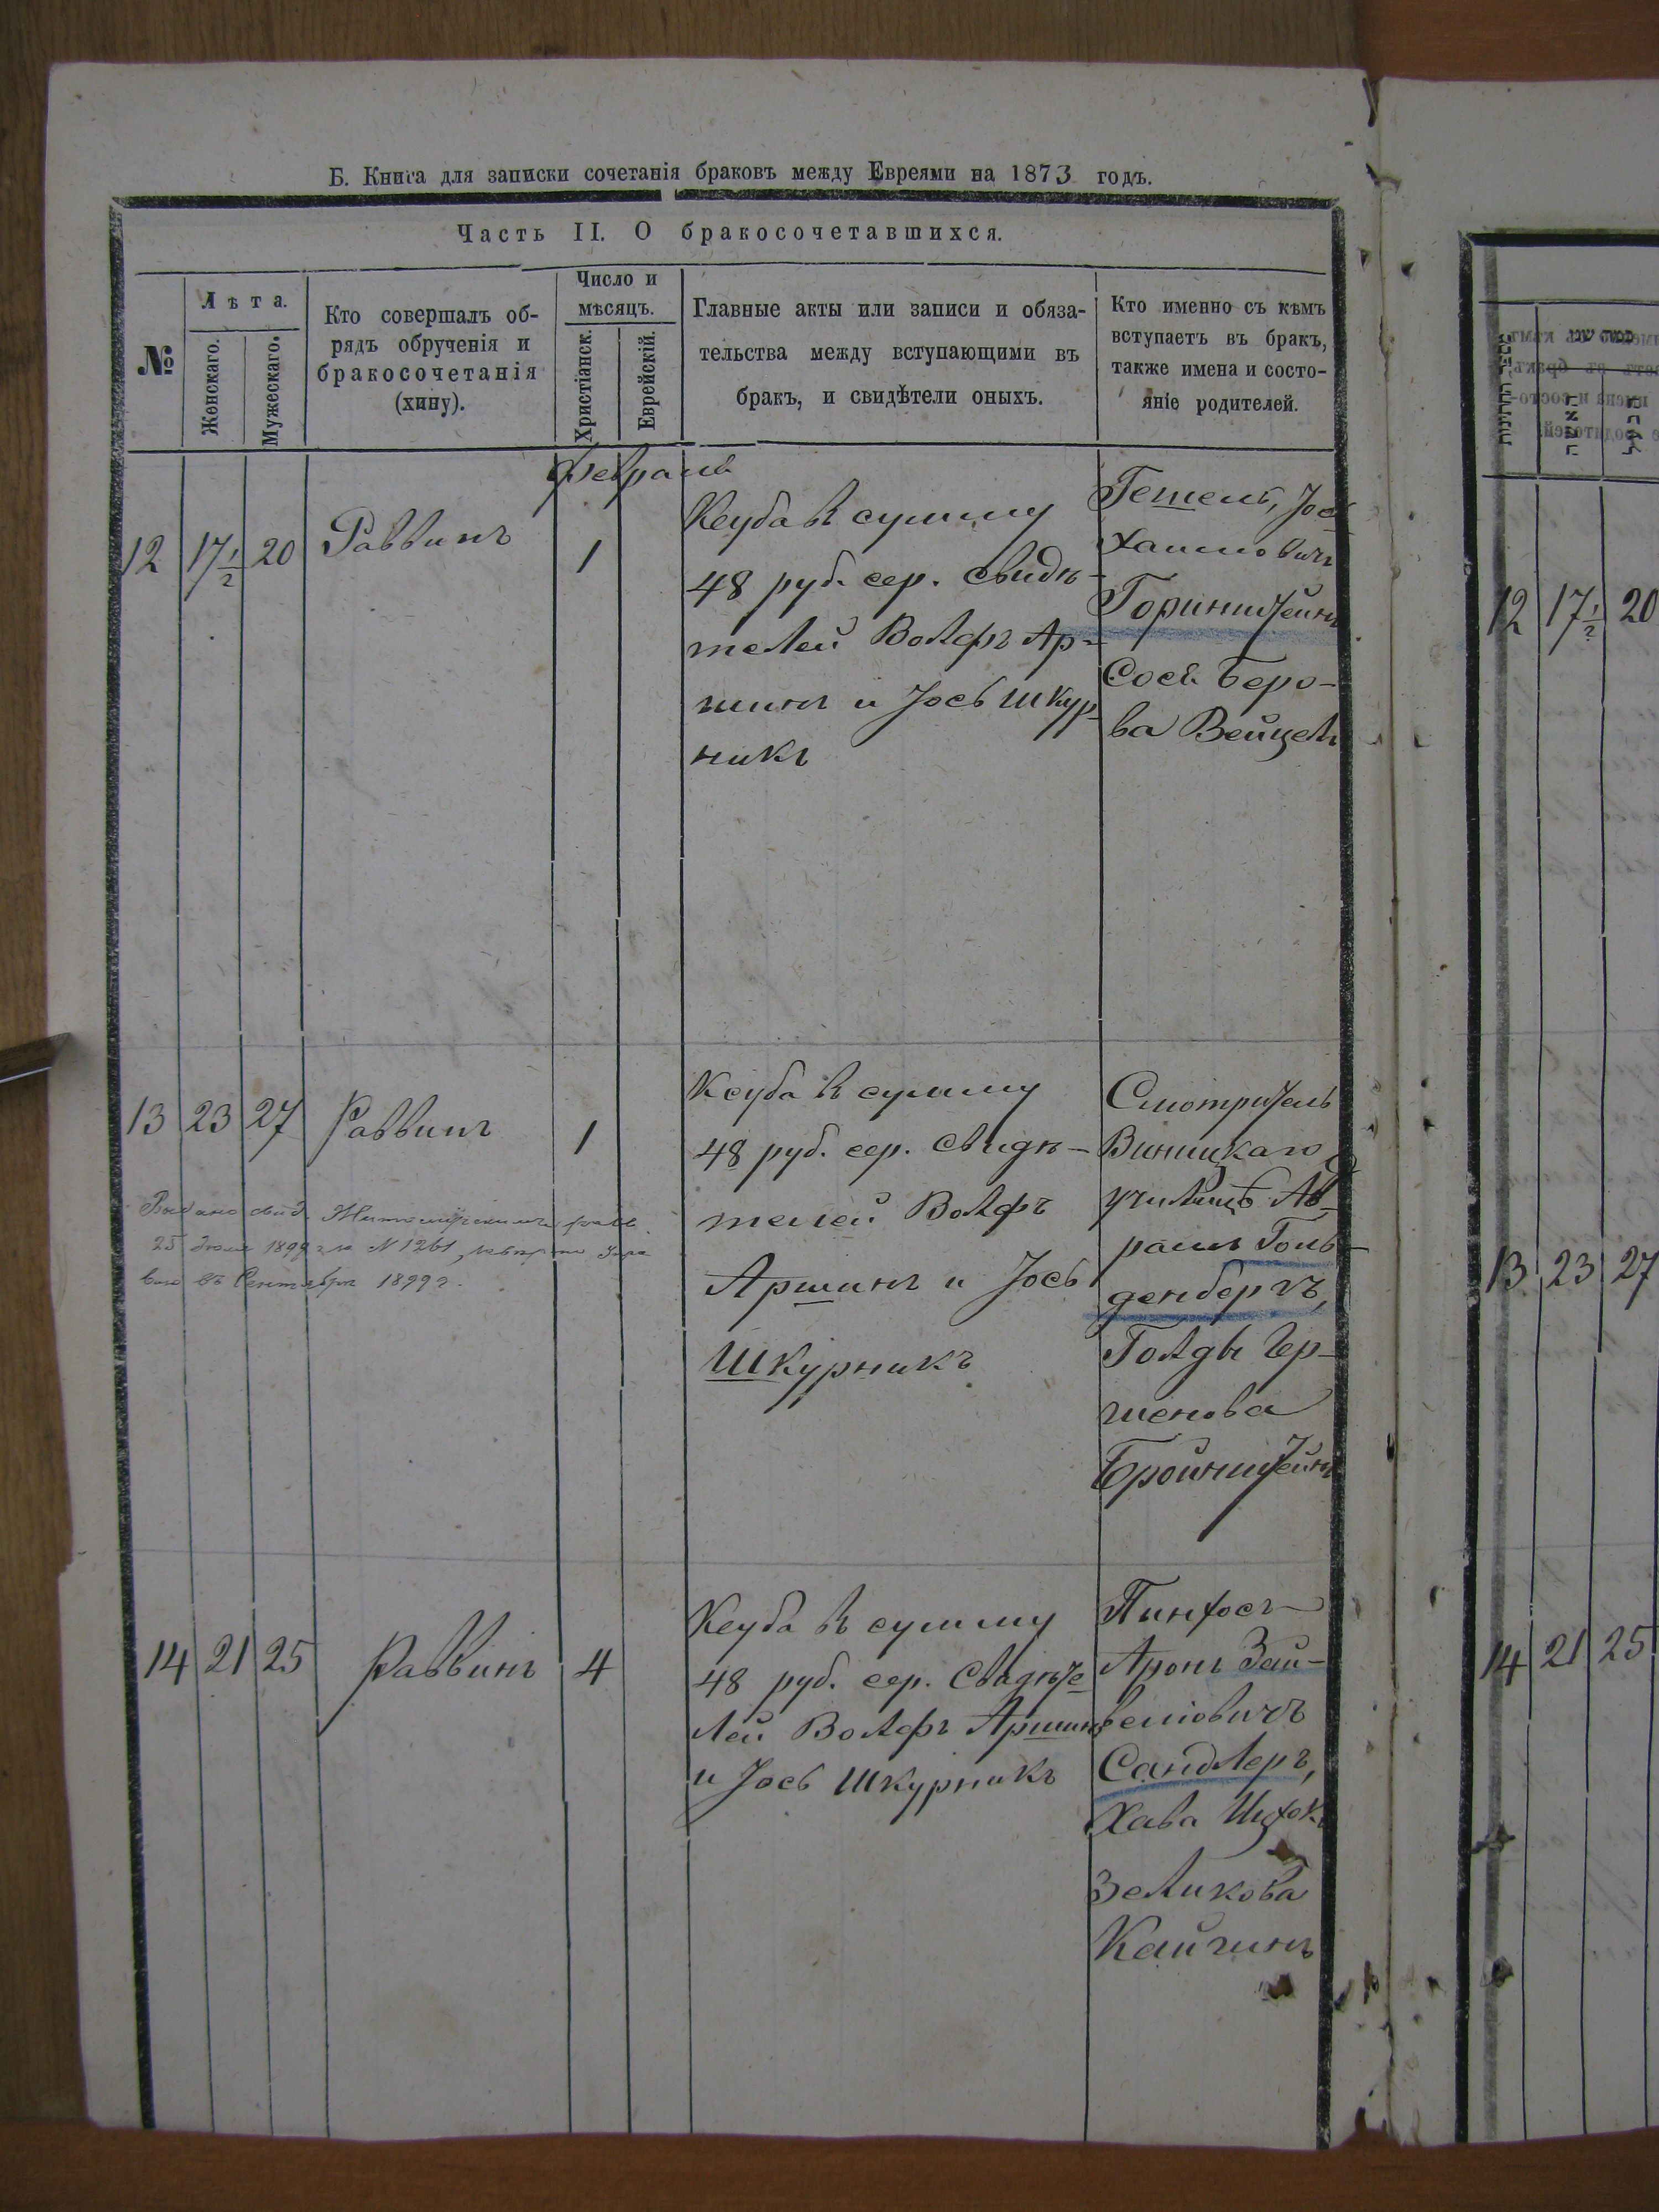 Б. Книга для записки сочетанія браковъ между Евреями на 1873 годъ.
Часть II. О бракосочетавшихся.
№
Лѣта.
Женскаго.
Мужескаго.
Кто совершалъ об-
рядъ обрученія и
бракосочетанія
(хипу).
Число и
мѣсяцъ.
Христіанск.
Еврейскій.
Главные акты или записи и обяза-
тельства между вступающими въ
бракъ, и свидѣтели оныхъ.
Кто именно съ кѣмъ
вступаетъ въ бракъ,
также имена и состо-
яніе родителей.
Февраль
12 17½ 20 Раввинъ 1
Ксуба въ сумму
48 руб. сер. Свидѣ-
телей Волфъ Ар-
шинъ и Іось Шкур-
никъ
Гешель, Іос
Хаимовичъ
Горинштейнъ
Сося Беро-
ва Вейцелъ
13 23 27 Раввинъ 1
Выдано свид. Житомірскимъ
25 1899 г. за N 1261,
въ Сентября 1899 г.
Ксуба въ сумму
48 руб. сер. Свидѣ-
телей Волфъ
Аршинъ и Іось
Шкурникъ
Смотритель
Виницкаго
училища Ав-
рамъ Голь-
денбергъ,
Голды Гер-
шенова
Бройнштейнъ
14 21 25 Раввинъ 4
Ксуба въ сумму
48 руб. сер. Свидѣте
лей Волфъ Аршинъ
и Іось Шкурникъ
Пинхосъ
Аронъ Зей-
веліовичъ
Сандлеръ,
Хава
Зеликова
Кайчинъ
12 17½ 20
13 23 27
14 21 25